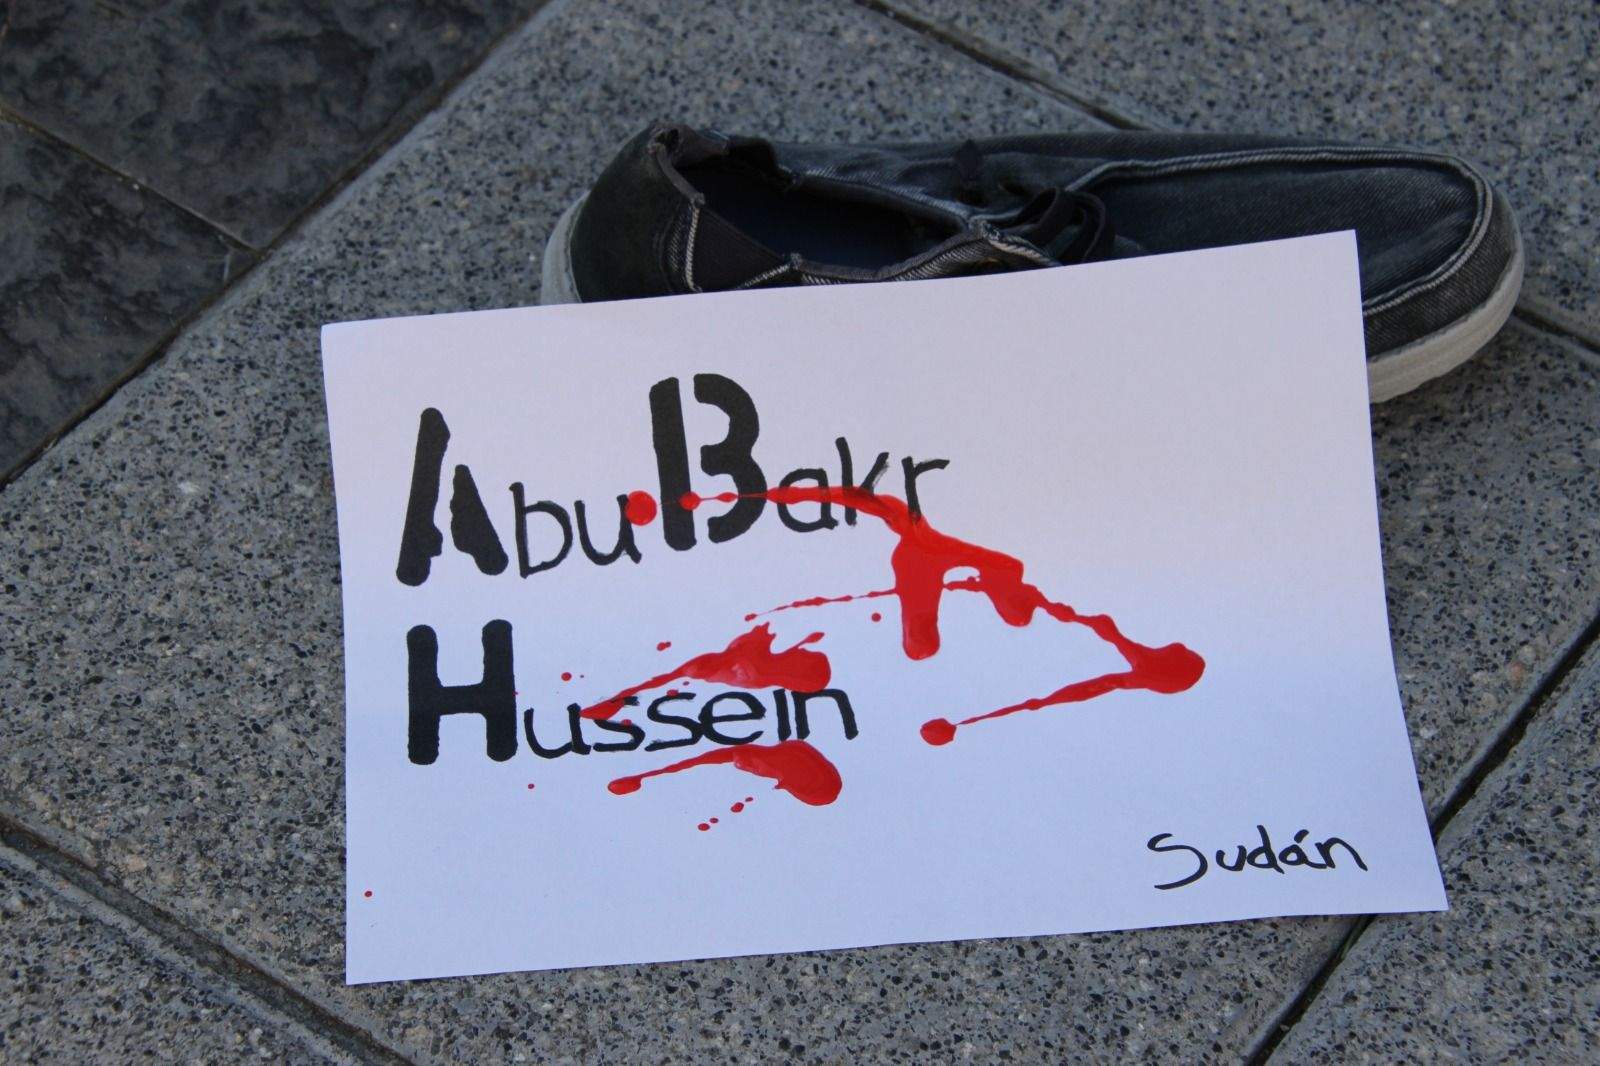 Abu Bakr
Hussein
Sudán